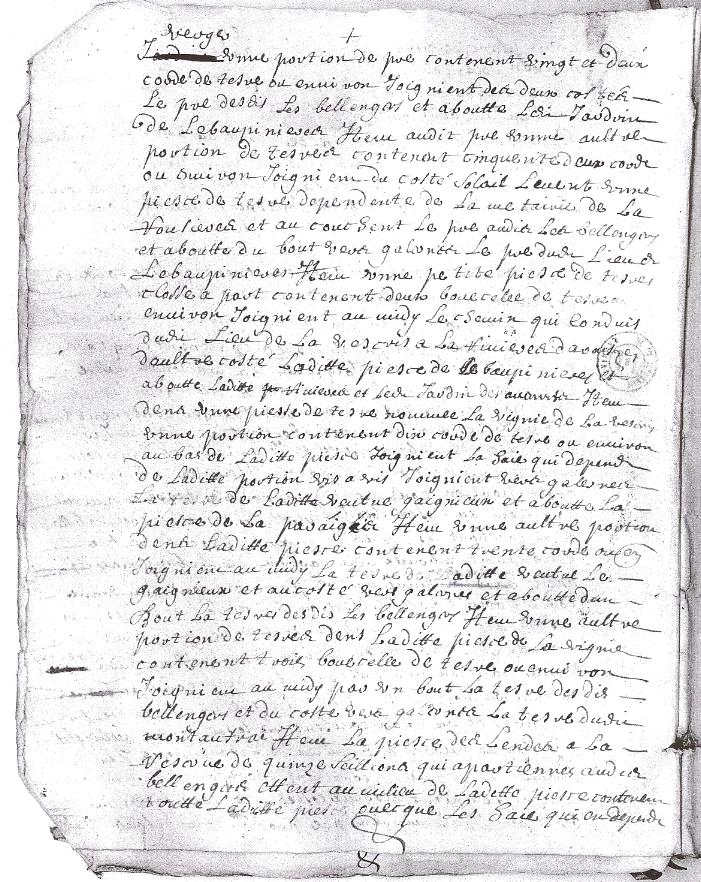 verge
vnne portion de pre contenent vingt et deux
corde de terre ou envi ron Joignient des deux costez
Le pre desdis Les bellengers et aboutte Ledi Jardrin
de Lebaupinieres Item audit pre vnne aultre
portion de terres contenent cinquente deux corde
ou Envi ron Joigniem du costé Solail Levent vnne
piesce de terre dependente de La metairie de La
et au couchent Le pre audis Les bellengers
et aboutte du bout vers galerne Le pre dudi Lieu de
Lebaupinieres Item vnne petite piesce de terres
closse a part contenent deux bouecelle de terre
environ Joignient au midy Le chemin qui conduis
dudi Lieu de La a La Riviere
daultre costé Laditte piesce de Lebaupinieres et
aboutte Laditte Riviere et Ledi Jardin des Item
dens vnne piesse de terre nommee La vignie de La
vnne portion contenent dix corde de terre ou environ
au bas de Laditte piesce Joignient La haie qui depend
de Laditte portion vis a vis Joignient vers galerne
La terre de Laditte veufve gaignieux et aboutte La
piesce de La Item vnne aultre portion
dens Laditte piesce contenent trente corde ou en
Joigniem au midy La terre de Laditte veufve Le
gaignieux et au costé vers galerne et aboutte dun
Bout La terres desdis Les bellengers Item vnne aultre
portion de terres dens Laditte piesce de La vignie
contenent trois bouecelle de terre ou envi ron
Joigniem au midy par vn bout La terre desdis
bellengers et du coste vers galerne La terre dudi
montautrai Item La piesce des Landes a La
de quinze Seillions qui apartiennes audis
bellengers estent au milieu de Laditte piesce contenem
toutte Laditte pies avecque Les haie qui en depende